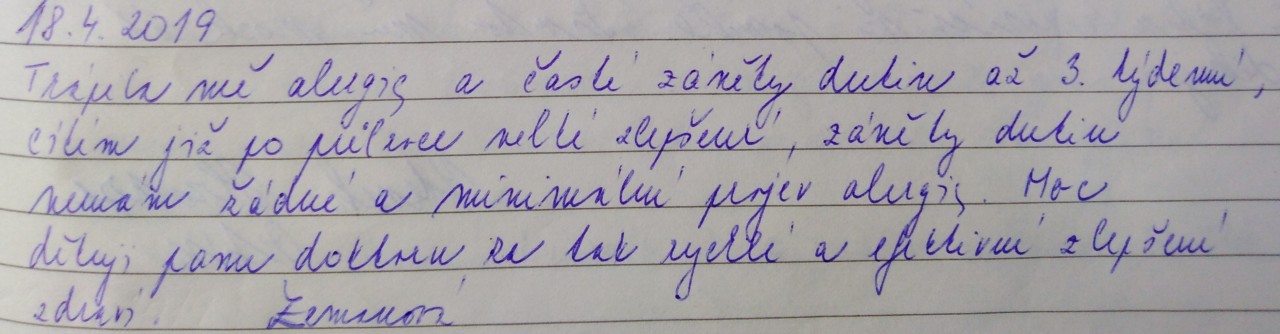 18.4.2019
Trápila mě alergie a časté záněty dutin až 3. týdenní,
cítím již po půl roce velké zlepšení, záněty dutin
nemám žádné a minimální projev alergie. Moc
děkuji panu doktoru za tak rychlé a efektivní zlepšení
zdraví. Zemanová